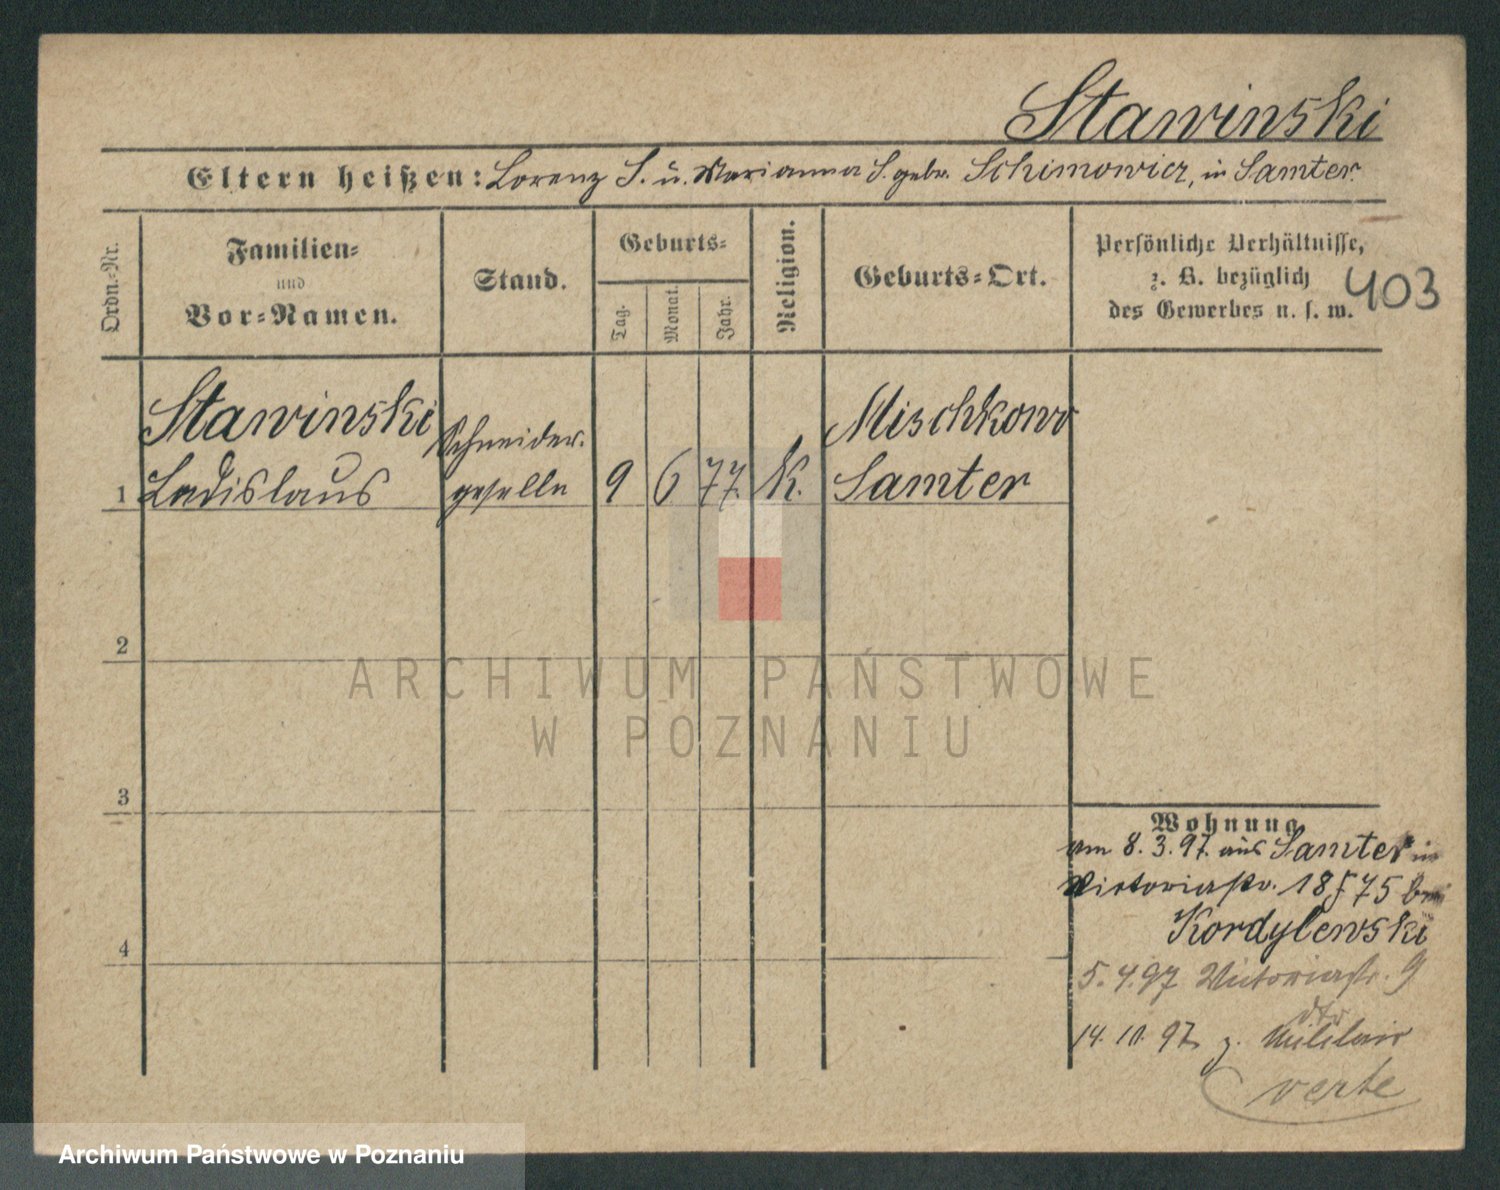 Stawinski
Eltern heißen: Lorenz S. u. Marianna S. gebr. Schimowicz, in Samter.
Ordn.-Nr.
Familien-
und
Vor-Namen.
Stand.
Geburts-
Tag.
Monat.
Jahr.
Religion.
Geburts-Ort.
Persönliche Verhältnisse,
z. B. bezüglich
des Gewerbes u. s. w.
403
1 Stawinski
Ladislaus
Schneider-
geselle
9 6 77. K.
Mischkowo
Samter
2
3
4
Wohnung
am 8.3.97. aus Samter in
Victoriastr. 18 75 bei
Kordylewski
5.4.97 Victoriastr. 9
dto
14.10.97. z. Militair
verte
ARCHIWUM PAŃSTWOWE
W POZNANIU
Archiwum Państwowe w Poznaniu